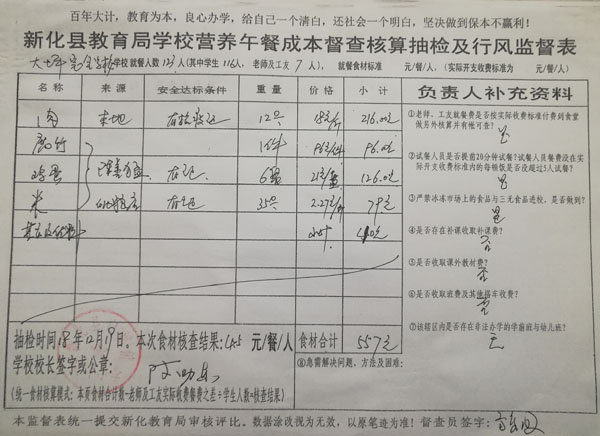 百年大计，教育为本，良心办学，给自己一个清白，还社会一个明白，坚决做到保本不赢利！
新化县教育局学校营养午餐成本督查核算抽检及行风监督表
学校就餐人数123人(其中学生116人，老师及工友7人)，就餐食材标准 元/餐/人，(实际开支收费标准为 元/餐/人)
名称 来源 安全达标条件 重量 价格 小计 负责人补充资料
肉 本地 12斤 18元/斤 216.00元
腐竹 1件 96元/件 96.00元
鸡蛋 6盘 21元/盘 126.00元
米 35斤 2.27元/斤 79元
40元
①老师、工友就餐费是否按实际收费标准付费到食堂做另外核算并有帐可查？
是
②试餐人员是否提前20分钟试餐？试餐人员餐费没在实际开支收费标准内的每顿饭是否没超过5人试餐？
是
③严禁冰冻市场上的食品与三无食品进校，是否做到？
是
④是否存在补课收取补课费？
否
⑤是否收取课外教材费？
否
⑥是否收取班费及其他搭车收费？
否
⑦该辖区内是否存在非法办学的学前班与幼儿班？
无
抽检时间18年12月19日。本次食材核查结果：4.55元/餐/人 食材合计 557元
学校校长签字或公章：
⑧急需解决问题，方法及困难：
(统一食材核算模式：本页食材合计数-老师及工友实际收费餐费之差÷学生人数=核查结果)
本监督表统一提交新化教育局审核评比。数据涂改视为无效，以原笔迹为准！督查员签字：